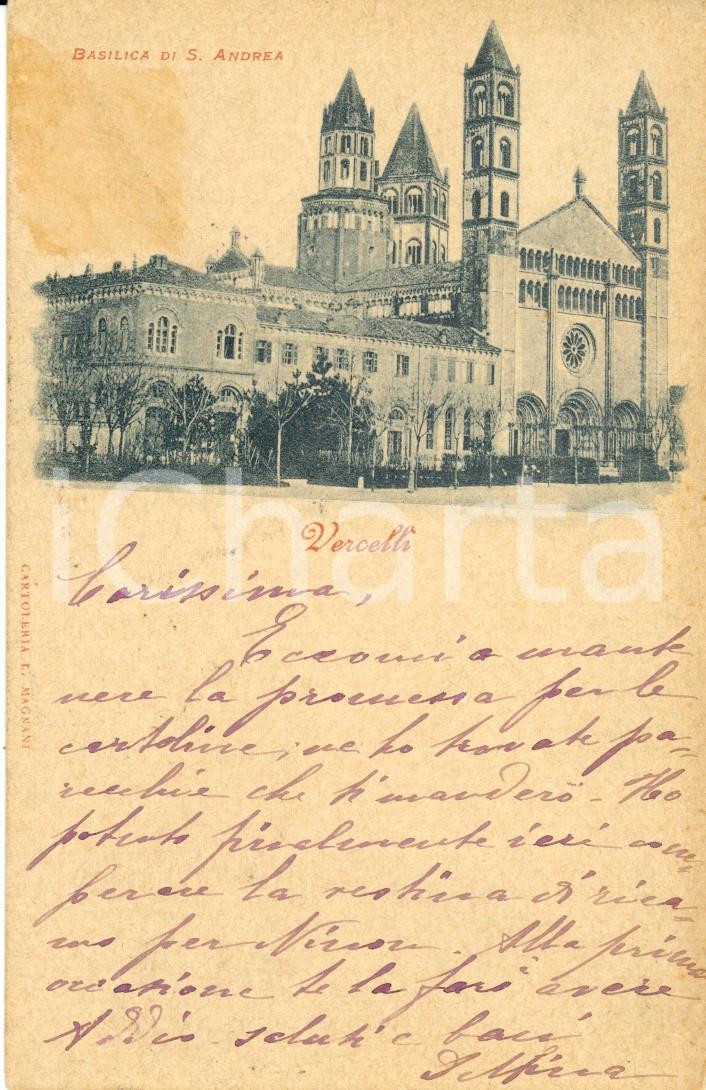 BASILICA DI S. ANDREA
iCharta
Vercelli
CARTOLERIA E. MAGNANI
Carissima,
Eccomi a mante
nere la promessa per le
cartoline; ne ho trovate pa-
recchie che ti manderò - Ho
potuto finalmente ieri com-
perare la vestina di rica-
mo per Ninon. Alla prima
occasione te la farò avere
Addio saluti e baci
Delfina